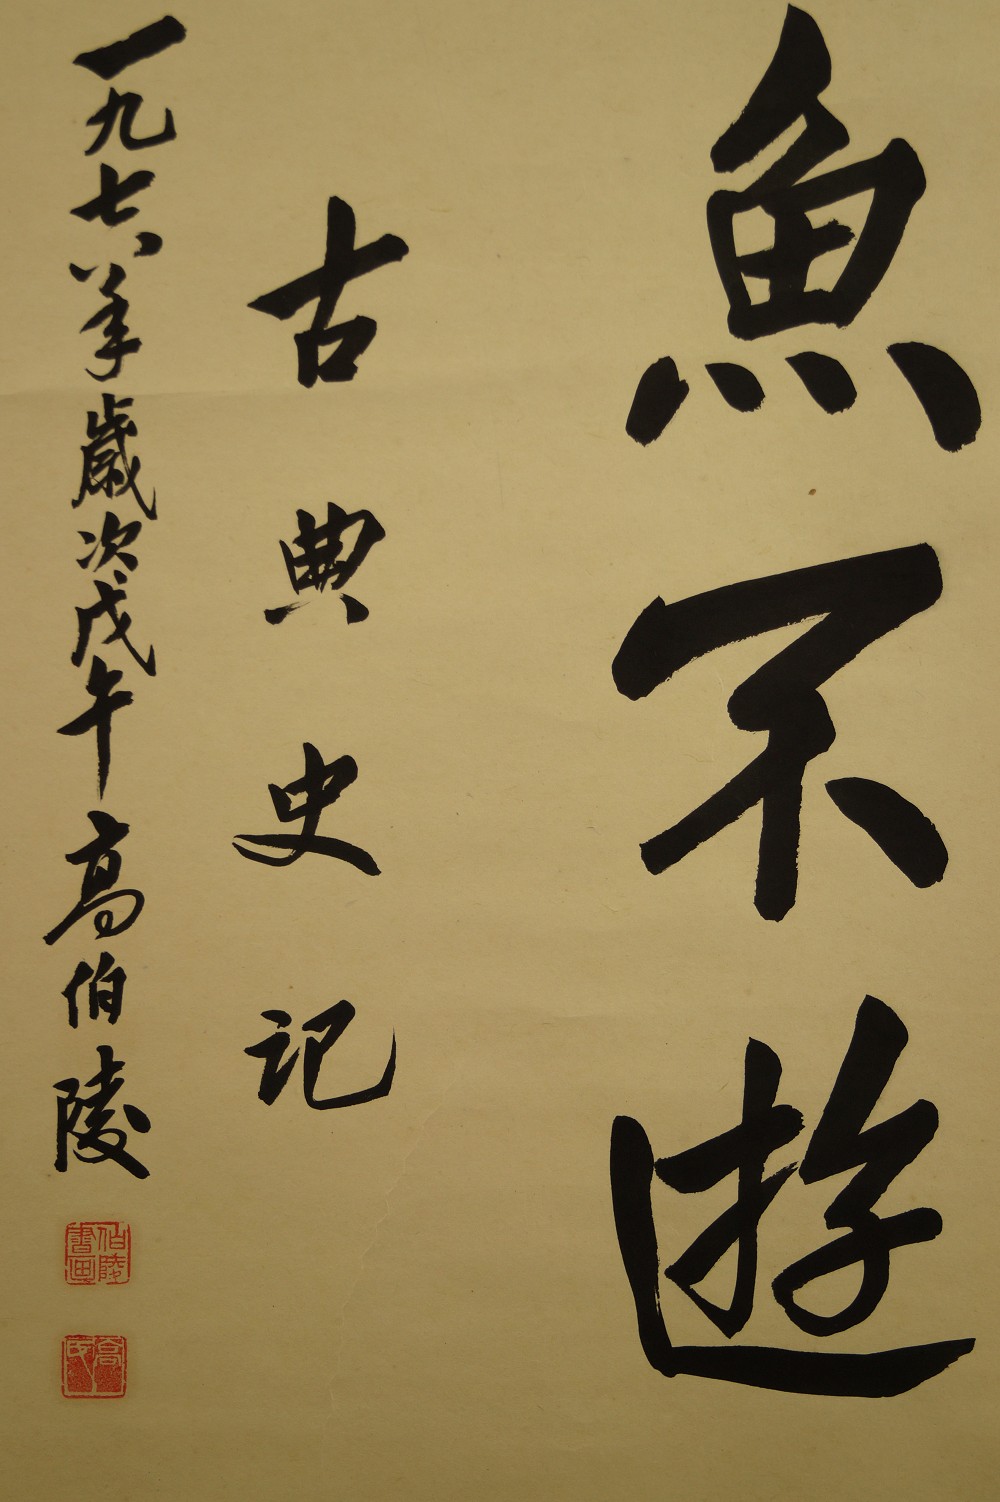 魚不遊
古典史记
一九七八年歲次戊午高伯陵
伯陵書画
高氏